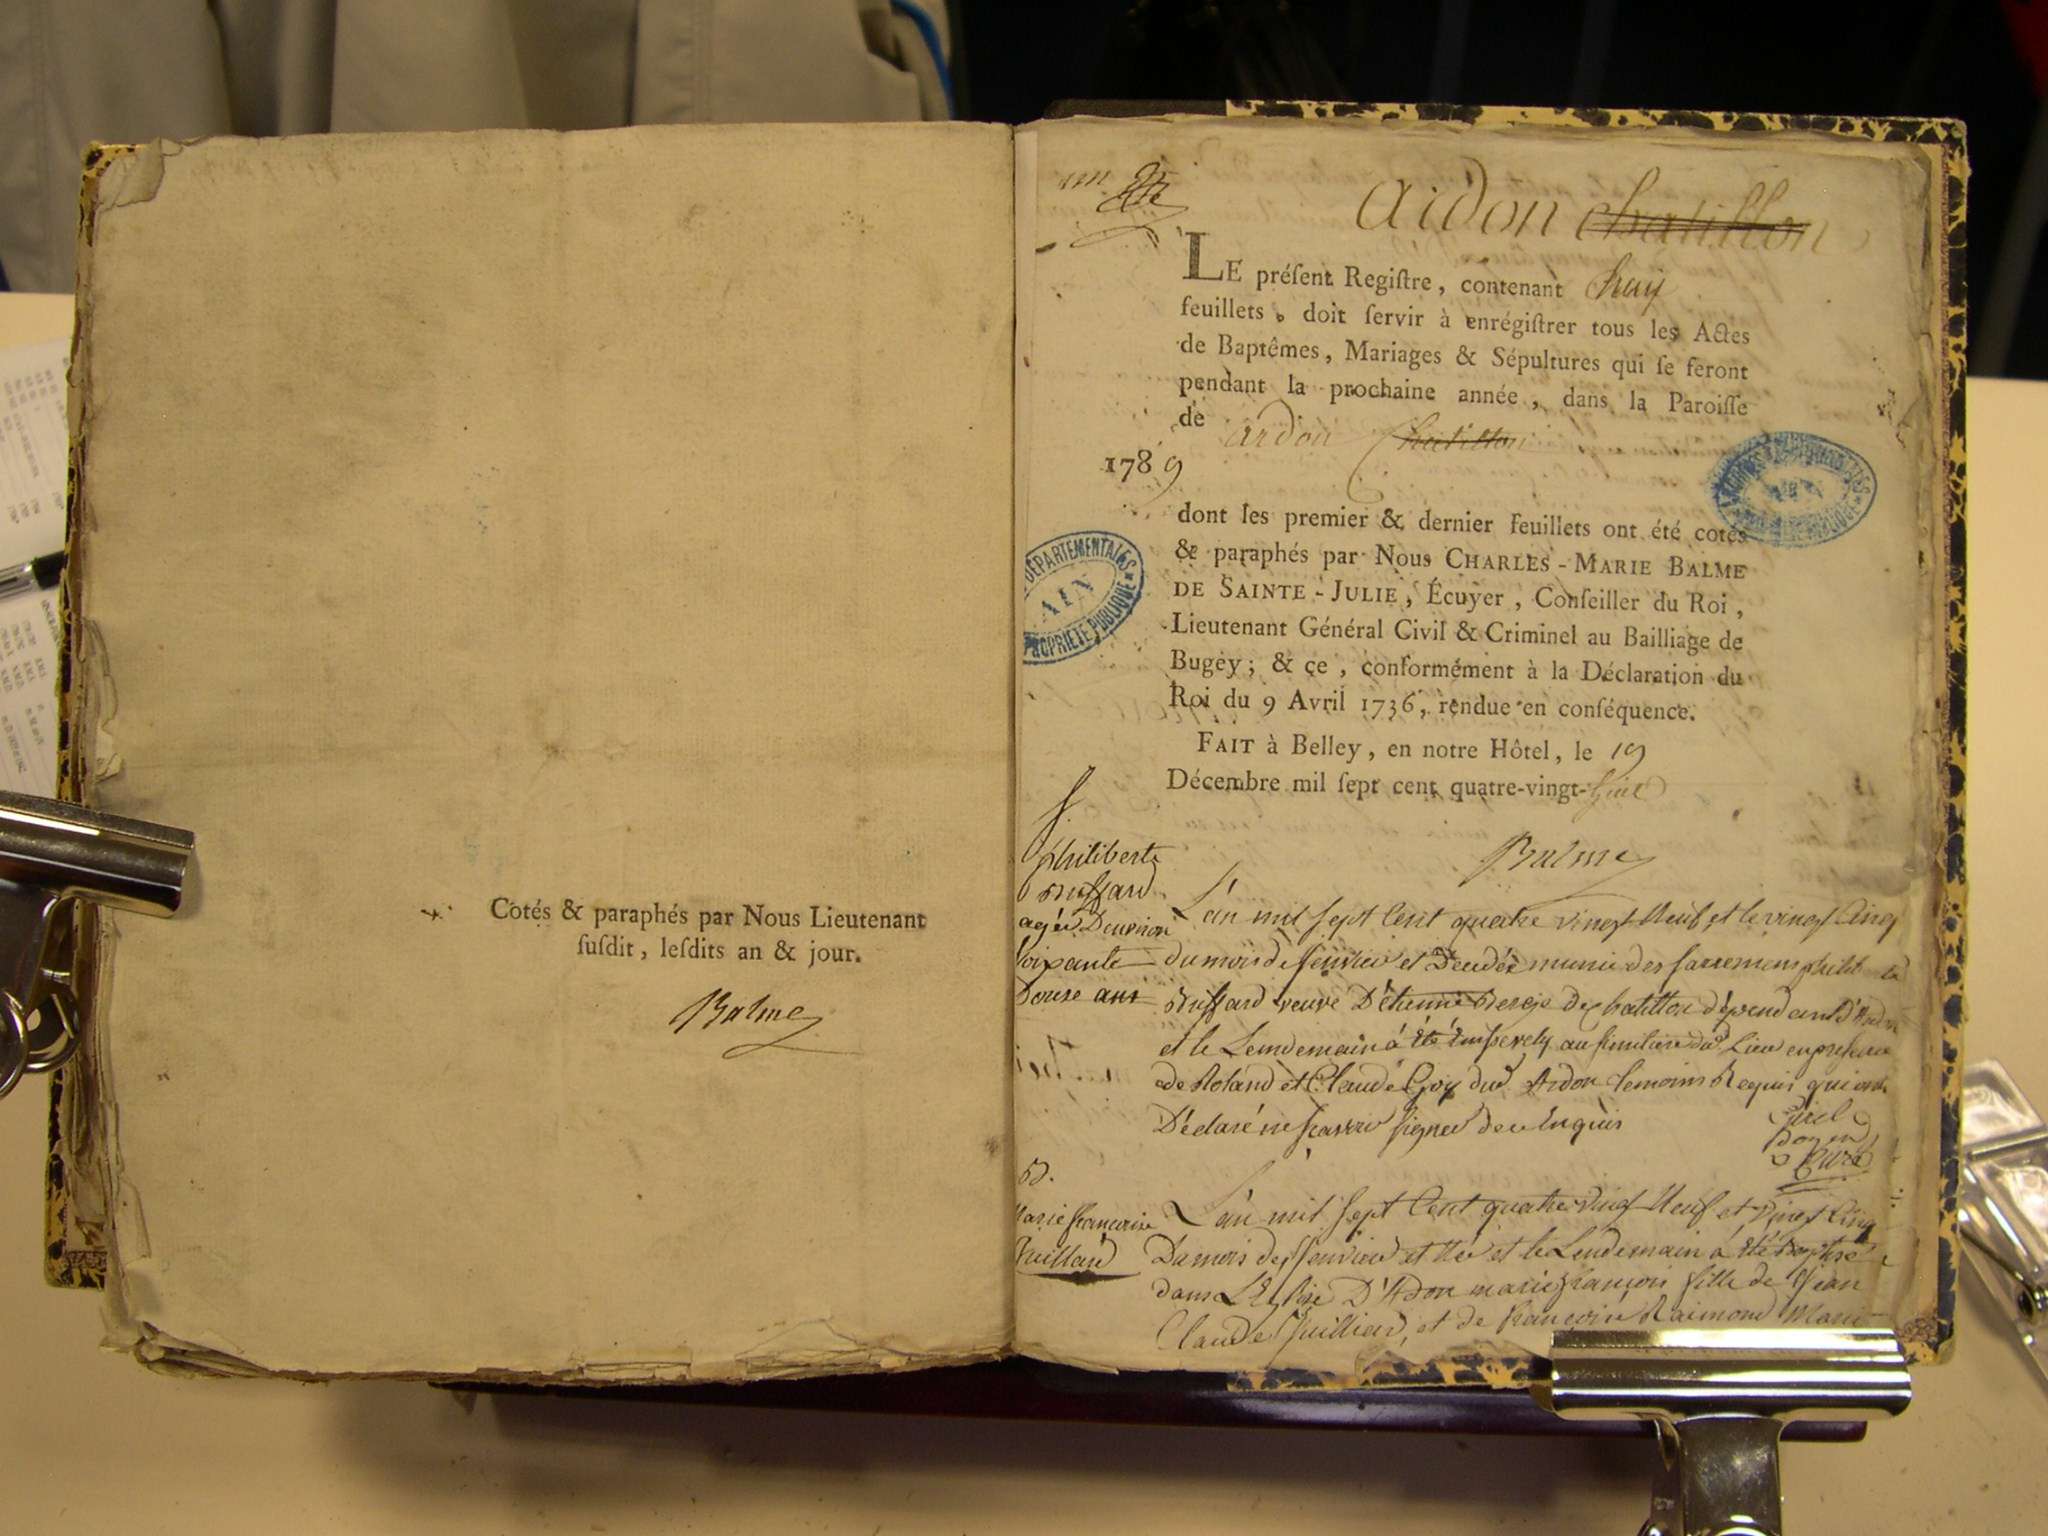 Cotés & paraphés par Nous Lieutenant
ſuſdit, leſdits an & jour.
Balme
Ardon chatillon
LE préſent Regiſtre, contenant
feuillets, doit ſervir à enrégiſtrer tous les Actes
de Baptêmes, Mariages & Sépultures qui ſe feront
pendant la prochaine année, dans la Paroiſſe
de ardon Chatillon
1789
dont les premier & dernier feuillets ont été cotés
& paraphés par Nous CHARLES-MARIE BALME
DE SAINTE-JULIE, Écuyer, Conſeiller du Roi,
Lieutenant Général Civil & Criminel au Bailliage de
Bugey; & ce, conformément à la Déclaration du
Roi du 9 Avril 1736, rendue en conſéquence.
FAIT à Belley, en notre Hôtel, le 19
Décembre mil ſept cent quatre-vingt-huit
Balme
DÉPARTEMENTALES
AIN
PROPRIÉTÉ PUBLIQUE
philiberte
Buffard
agée D'environ
soixante
Douze ans
L'an mil sept Cent quatre vingt Neuf et le vingt Cinq
du mois de et Décédée munie des sacremens
Buffard veuve D'étienne de chatillon dépendant D'Ardon
et le Lendemain à été Ensevely au simitière du d lieu en présence
de Roland et Claude Goy du d Ardon témoins Requis qui ont
Déclaré ne savoir signer de ce Enquis
Curé
B.
Marie françoise
Juillard
L'an mil sept Cent quatre vingt Neuf et vingt Cinq
Du mois de et Née et le Lendemain à été Baptisé
dans L'Eglise D'Ardon marie françois fille de Jean
Claude Juilliard, et de françoise Raimond Marié